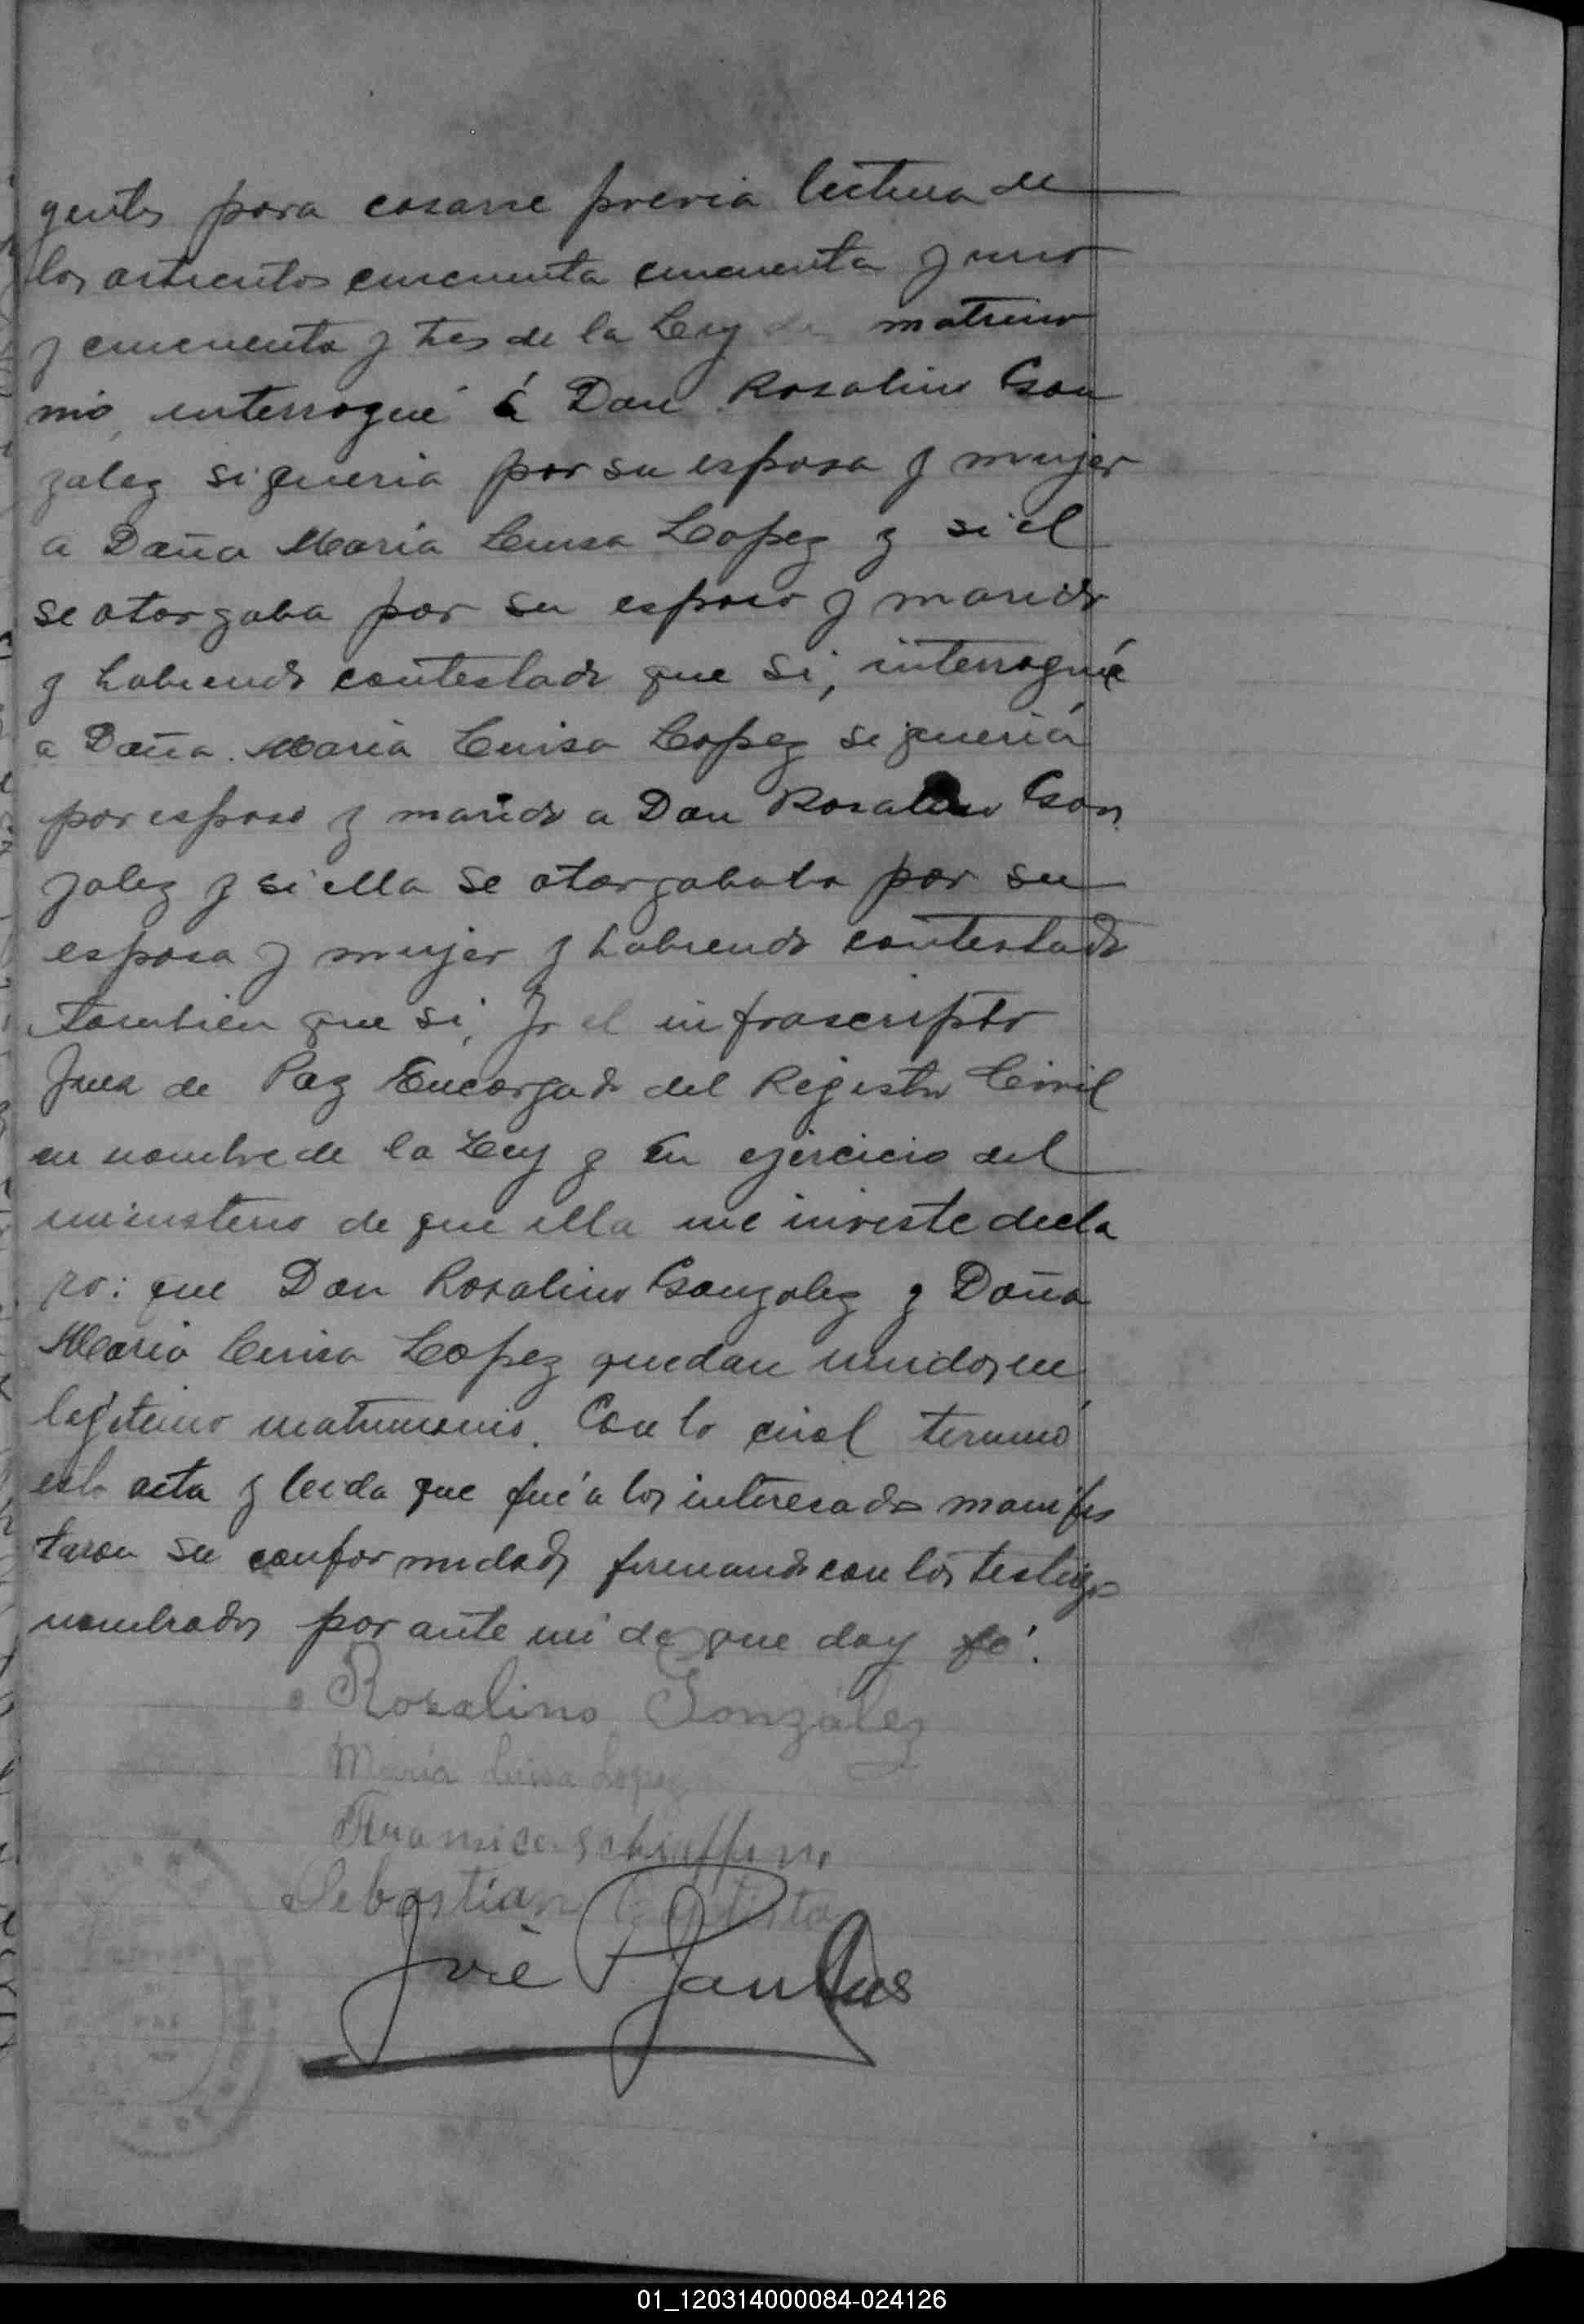 gentes para casarse previa lectura de
los articulos cincuenta cincuenta y uno
y cincuenta y tres de la Ley de matrimo
nio, interrogué á Don Rosalino Gon
zalez si queria por su esposa y mujer
a Doña Maria Luisa Lopez y si el
se otorgaba por su esposo y marido
y habiendo contestado que si, interrogué
a Doña Maria Luisa Lopez si queriá
por esposo y marido a Don Rosalino Gon
zalez y si ella se otorgababa por su
esposa y mujer y habiendo contestado
tambien que si, Yo el infrascripto
Juez de Paz Encargado del Registro Civil
en nombre de la Ley y en ejercicio del
ministerio de que ella me inviste decla
ro: que Don Rosalino Gonzalez y Doña
Maria Luisa Lopez quedan unidos en
legitimo matrimonio. Con lo cual terminó
esta acta y leida que fué a los interesados manifes
taron su conformidad, firmando con los testigos
nombrados por ante mi de que doy fé.
Rosalino Gonzalez
Maria Luisa Lopez
Schiaffino
Sebastian
José P.
01_120314000084-024126